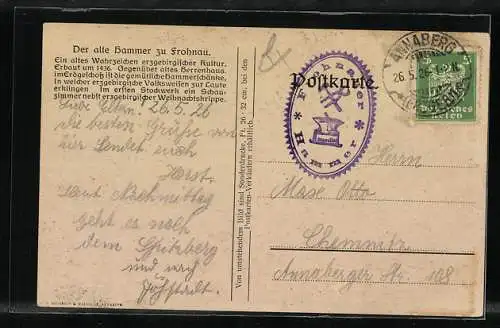 Der alte Hammer zu Frohnau.
Ein altes Wahrzeichen erzgebirgischer Kultur.
Erbaut um 1436. Gegenüber altes Herrenhaus.
im Erdgeschoß ist die gemütliche Hammerschänke,
in welcher erzgebirgische Volksweisen zur Laute
erklingen. Im ersten Stockwerk ein Schau-
zimmer nebst erzgebirgischer Weihnachtskrippe.
Liebe Eltern! 26.5.26
die besten Grüße von
hier sendet euch
Horst.
Heut Nachmittag
geht es nach
dem Spitzberg
und nach
Jöhstadt.
Von umstehendem Bild sind Sonderdrucke, Pr. 26 × 32 cm, bei den
Postkarten-Verkäufern erhältlich.
Postkarte
Frohnauer
Hammer
ANNABERG
26.5.26
(ERZGEB.)
Deutsches
Reich
Herrn
Max Otto
Chemnitz
Annaberger Str. 108